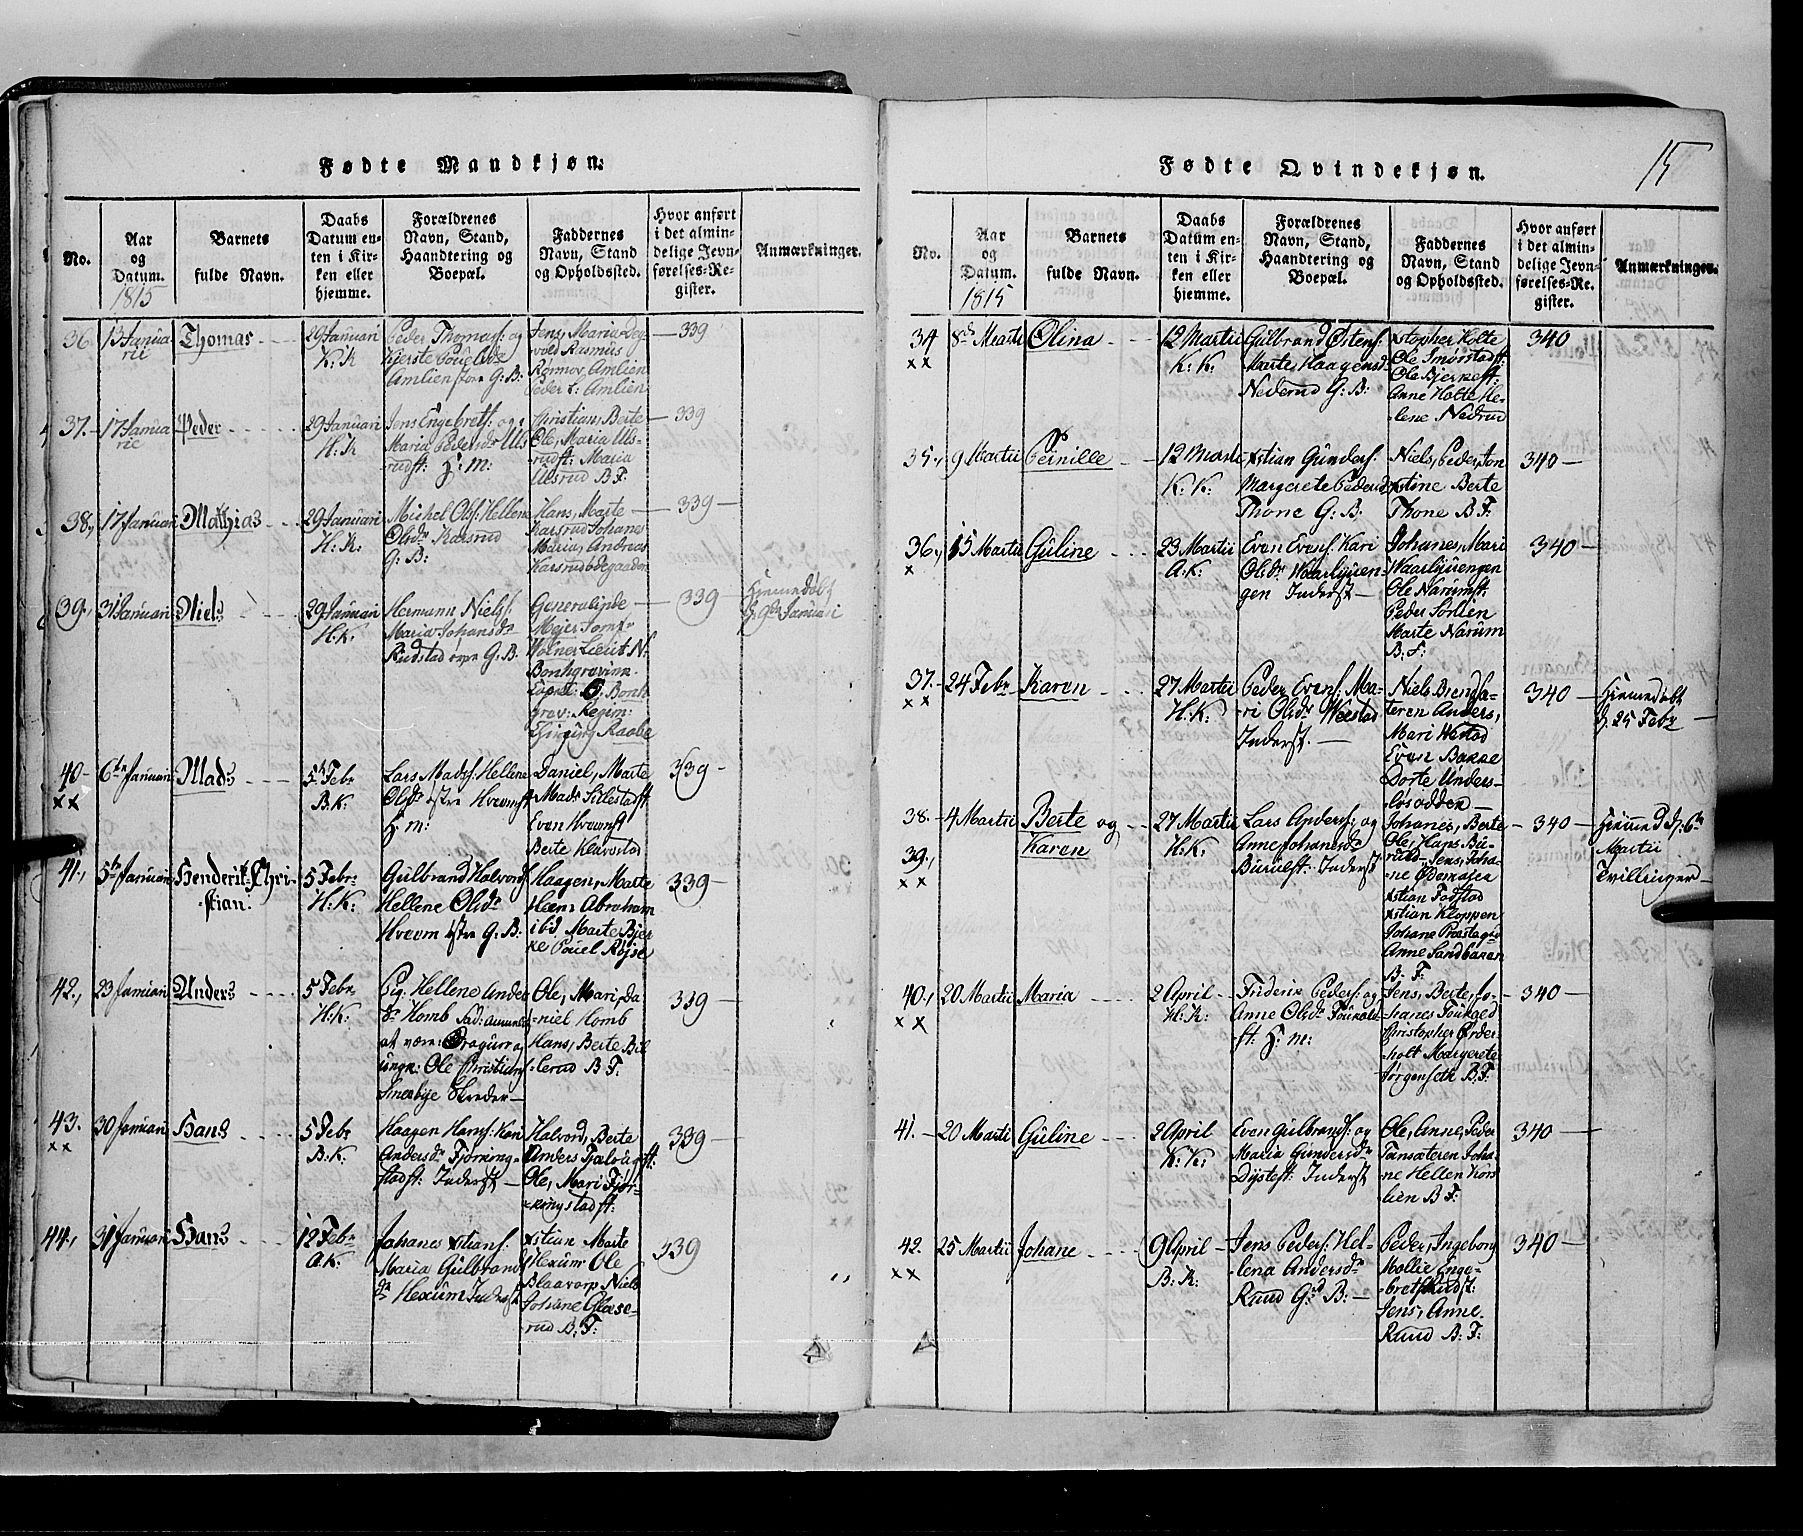 Fødte Mandkjøn.
No.
Aar
og
Datum.
1815
Barnets
fulde Navn.
Daabs
Datum en-
ten i Kir-
ken eller
hjemme.
Forældrenes
Navn, Stand,
Haandtering og
Boepæl.
Faddernes
Navn, Stand
og Opholdssted.
Hvor anført
i det almin-
delige Jevn-
førelses-Re-
gister.
Anmærkninger.
36. 13 Janua
rii
Thomas
29 Januari
K: K
Peder Thomas: og
Amlien G: B.
Jens, Maria
vold Rasmus
Amlien
Peder Amlien
339
37. 17 Janua
rie
Peder
29 Januari
H: K
Jens Engebretf: og
Maria Peders dr Uls
rudf: H: M:
Christian, Berte
Ole, Maria Uls-
rudf: Maria
Ulsrud B F:
339
38, 17 Januari
Mathias
29 Januari
H: K:
Michel Ols: Hellene
Olsdr Karsrud
G: B:
Hans, Marte
Karsrud Johanes
Maria, Andreas
Karsrudødegaarden
339
39, 31 Januari
Niels
29 Januari
H: K:
Hermann Niels:
Maria Johansdr
Rudstad G: B.
Generalinde
Mejer
Lieut N.
Raabe
339
Hiemmedøbt
d: 9de Januari
40- 6te Januari
xx
Mads
5 Febr
B. K:
Lars Mads: Hellene
Olsdr Hvevm
H: m:
Daniel, Marte
Mads Sillestadf:
Even Hvevm
Berte Klævstad
339
41, 5te Januari
Henderik Chri-
stian.
5 Febr
H: K:
Gulbrand Halvors
Hellene Olsdr
Hvevm G: B.
Haagen, Marte
Abraham
ibid Marte Bjer
ke Pouel Røjse
339
42, 23 Januari
Anders
5 Febr
H: K:
Pig. Hellene Ander
dr Homb
at være: Dragun
Ole Christians
Smebye Skreder
Ole, Mari, Da
niel Homb
Hans, Berte Bil
lerud B F:
339
43. 30 Januari
xx
Hans
5 Febr
B: K:
Haagen Hans: Kari
Andersdr Fjorking-
stadf: Inderst
Halvord, Berte
Anders
Ole, Mari Fjor-
kingstadf:
339
44, 31 Januari
Hans
12 Febr
A K:
Johanes xtians:
Maria Gulbrands
dr Hexum Inderst
xtian Marte
Hexum Ole
Blaavarp Niels
Johane Glæse-
rud B. F:
339
15
Fødte Qvindekjøn.
No.
Aar
og
Datum.
1815
Barnets
fulde Navn.
Daabs
Datum en-
ten i Kir-
ken eller
hjemme.
Forældrenes
Navn, Stand,
Haandtering og
Boepæl.
Faddernes
Navn, Stand
og Opholdssted.
Hvor anført
i det almin-
delige Jevn-
førelses-Re-
gister.
Anmærkninger.
34 8de Martii
xx
Olina
12 Martii
K: K:
Gulbrand Østens:
Marte Haagensdr
Nederud G: B:
xstopher Holte
Ole Smørstadf:
Ole Bjerkef:
Anne Holte He-
lene Nedrud
340
35, 9 Martii
Pernille
12 Martii
K: K:
xstian Gunders:
Margrete Pedersd
Thone G: B.
Niels, Peder, Jon
xstine Berte
Thone B F:
340
36, 15 Martii
x
Guline
23 Martii
A: K:
Even Evens: Kari
Olsdr Waarlyren-
gen Inderst
Johanes, Mari
Waarlyrengen
Ole Narumf:
Peder Sørlien
Marte Narum
B. F:
340
37. 24 Febr
xx
Karen
27 Martii
H: K:
Peder Evens: Ma-
ri Olsdr Westad
Inderst.
Niels Brendsæ-
teren Anders,
Mari Westad
Even Bakke
Dorte Unders-
løsødden
340
Hiemmedøbt
d. 25 Febr
38. 4 Martii
39,
xx
Berte og
Karen
27 Martii
H: K:
Lars Anders: og
Anne Johansdr
Inderst
Johanes, Berte
Ole, Hans Bu-
rud Jens, Joha-
ne Ødemarken
xstian Fodstad
xstian Kloppen
Johane Præstagrd
Anne Sandbakken
B. F:
340
Hiemmed d: 6te
Martii
Tvillinger
40, 20 Martii
xx
Maria
2 April
H: K:
Friderik Peders: og
Anne Olsdr Foskold
f: H: m:
Jens, Berte, Jo-
hanes Foskold
Christopher Order-
holt Margerete
Jørgenseth B. F:
340
41. 20 Martii
Guline
2 April
K: K:
Even Gulbrands: og
Maria Gundersdr
Dystef: Inderst
Ole, Anne, Peder
Tansæteren Joha-
ne Hellen Kors
lien B F:
340
42. 25 Martii
xx
Johane
9 April
B: K:
Jens Peders: Hel-
lena Andersdr
Ruud Grd B:
Peder, Ingeborg
Mollie Enge-
bret Ruudf:
Jens, Anne
Ruud B: F:
340